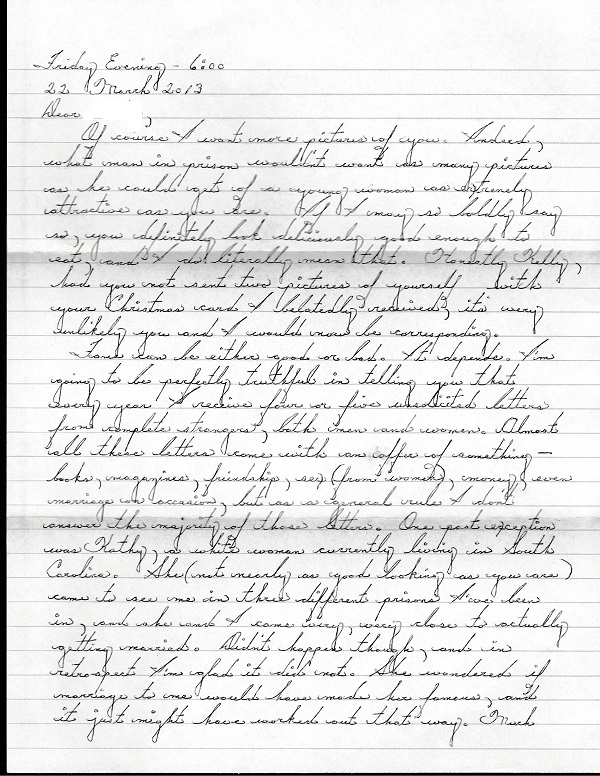 Friday Evening - 6:00
22 March 2013
Dear ,
Of course I want more pictures of you. Indeed,
what man in prison wouldn't want as many pictures
as he could get of a young woman as extremely
attractive as you are. If I may so boldly say
so, you definitely look deliciously good enough to
eat, and I do literally mean that. Honestly Kelly,
had you not sent two pictures of yourself with
your Christmas card I belatedly received, it's very
unlikely you and I would now be corresponding.
Fame can be either good or bad. It depends. I'm
going to be perfectly truthful in telling you that
every year I receive four or five unsolicited letters
from complete strangers, both men and women. Almost
all these letters come with an offer of something —
books, magazines, friendship, sex (from women), money, even
marriage on occasion, but as a general rule I don't
answer the majority of those letters. One past exception
was Kathy, a white woman currently living in South
Carolina. She (not nearly as good looking as you are)
came to see me in three different prisons I've been
in, and she and I came very, very close to actually
getting married. Didn't happen though, and in
retrospect I'm glad it did not. She wondered if
marriage to me would have made her famous, and
it just might have worked out that way. Much